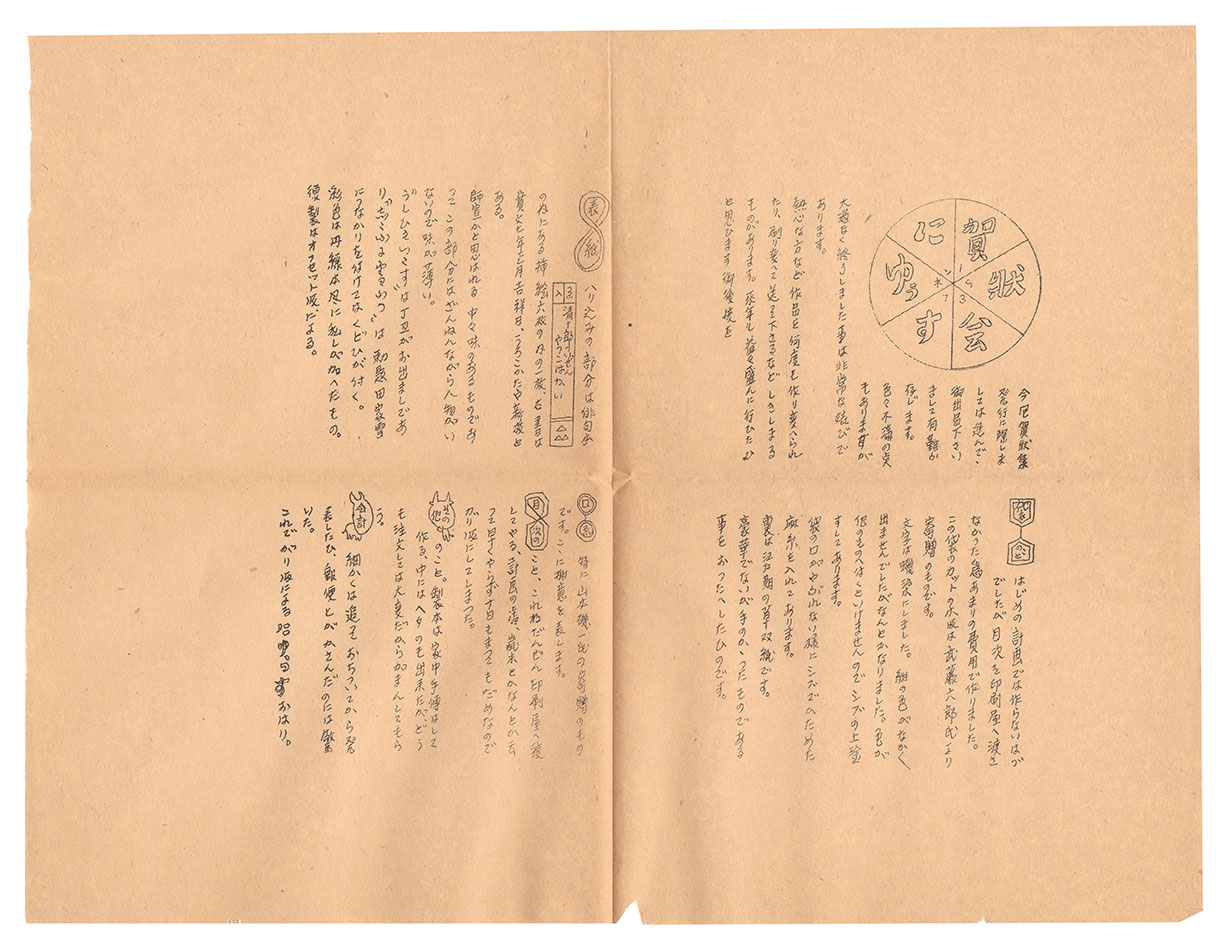 賀狀会
にゆうす
ネン1937
今囘賀狀集
発行に際しま
しては進んで、
御出品下さい
まして有難か
存じます。
色々不満の点
もありますが
大過なく終了しました事は非常な喜びで
あります。
熱心な方など作品を何度も作り変へられ
たり、刷り変へて送って下さるなどしきしまる
ものがあります。来年も益々盛んに行ひたひ
と思ひます御後援を
袋のこと
はじめの計画では作らないはづ
でしたが目次を印刷屋へ渡さ
なかった為あまりの費用で作りました。
この袋のカットの木版は武藤六郎氏より
寄贈のものです。
文字は謄冩にしました。紐の色がなかく
出ませんでしたがなんとかなりました。色が
他のものへつくといけませんのでシブの上塗
すしてあります。
袋の口がやぶれない様にシブでかためた
麻糸を入れてあります。
裏は江戸期の草双紙です。
豪華でないが手のかゝったものである
事をおつたへしたひのです。
表紙
ハリ込みの部分は俳句本
清十郎ついぜん
やつこはかい
の内にある挿絵六枚の内の一枚、右書は
貞享七年正月吉祥日、うろこかたや新板と
ある。
師宣かと思はれる中々味のあるものであ
つて この部分にはざんねんながら人物がい
ないので味が薄い。
うしひもいくすずは丁丑がお出ましであ
り"志ふる雪"は勅題田家雪
につながりを付けてはなくどひが付く。
彩色は丹緑は見に乱しが加へたもの。
複製はオフセット版による。
口絵
特に山本磯一氏の寄贈のもの
です。ここに謝意を表します。
目次の
こと、これ初だんぜん印刷屋へ渡
してやる、計画の処、歳末とかなんとか云
って日すぐやらず十日もまってもだめなので
がり版にしてしまった。
その他
のこと。製本は家中手傳はして
作る、中にはヘタのも出来たが、どう
も注文しては大変だからがまんしてもら
う。
会計
細かくは追てお ちついてから発
表したひ、郵便とがかさんだのには驚
いた。
これでがり版による 昭 おはり。